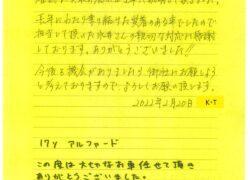 長年にわたり乗り続けた愛着のある車でしたので
担当して頂いた永井さんの親切な対応に感謝
しております。ありがとうございました!!
今後も機会がありましたら、御社にお願いしよう
と考えておりますので、よろしくお願い致します。
2022年2月20日 K・T
17y アルファード
この度は大切なお車任せて頂き
ありがとうございました。